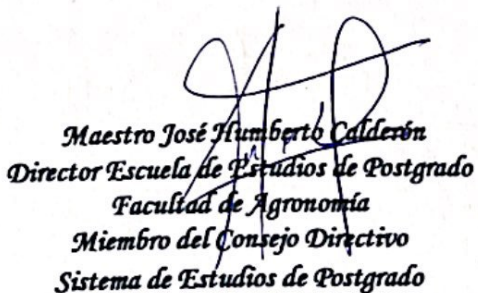 Maestro José Humberto Calderón
Director Escuela de Estudios de Postgrado
Facultad de Agronomía
Miembro del Consejo Directivo
Sistema de Estudios de Postgrado